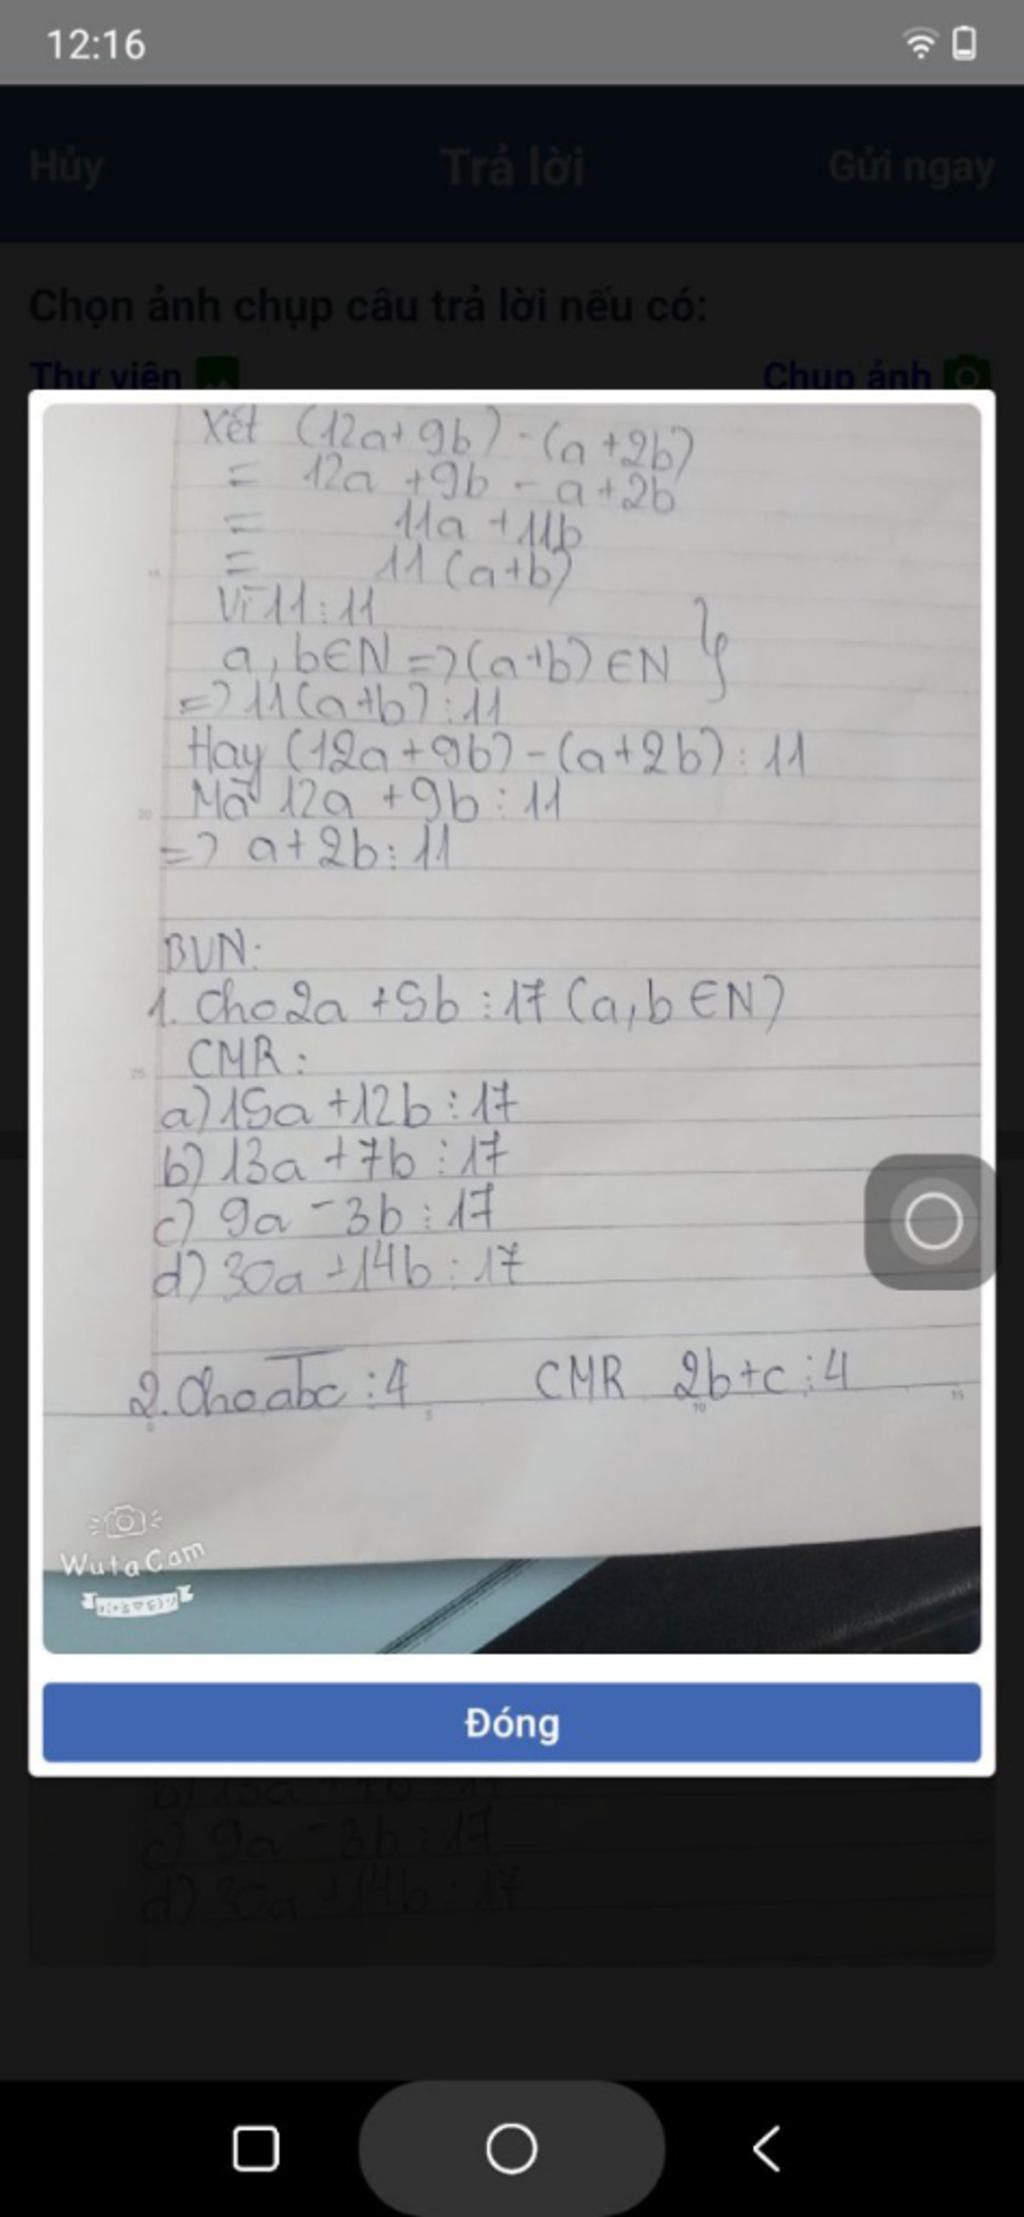 12:16
Hủy Trả lời Gửi ngay
Chọn ảnh chụp câu trả lời nếu có:
Thư viện Chụp ảnh
Xét (12a+9b)-(a+2b)
= 12a +9b - a+2b
= 11a +11b
= 11(a+b)
Vì 11⋮11
a,b∈N=>(a+b)∈N }
=>11(a+b)⋮11
Hay (12a+9b)-(a+2b)⋮11
Mà 12a +9b⋮11
=> a+2b⋮11
BVN:
1. Cho 2a +5b⋮17 (a,b∈N)
CMR:
a) 15a+12b⋮17
b) 13a+7b⋮17
c) 9a-3b⋮17
d) 30a+14b⋮17
2. Cho a̅b̅c̅⋮4 CMR 2b+c⋮4
0 5 10 15
WutaCam
Đóng
b) 13a+7b⋮17
c) 9a-3b⋮17
d) 30a+14b⋮17